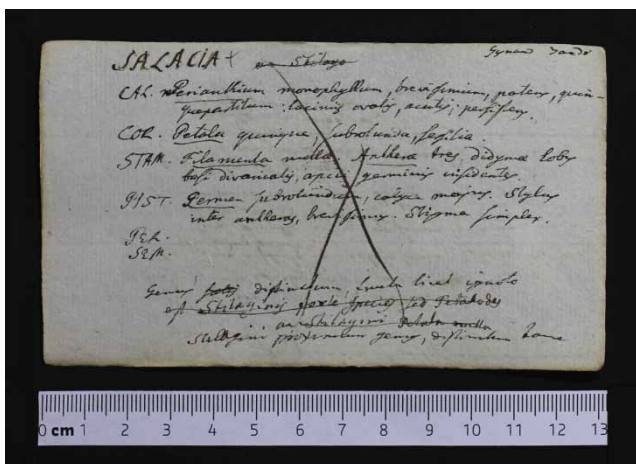 SALACIA + an Stilago Gynand Triandr
CAL. Perianthium monophyllum, brevissimum, patens, quin-
quepartitum: laciniis ovatis, acutis, persistens.
COR. Petala quinque, subrotunda, sessilia.
STAM. Filamenta nulla. Antherae tres, didymae lobis
basi divaricatis, apici germinis insidentes.
PIST. Germen subrotundum, calyce majus. Stylus
inter antheras, brevissimus. Stigma simplex.
PER.
SEM.
Genus distinctum, fructu licet ignoto
est Stilaginis forte species sed Petalodes
an Stilagini Petala nulla
Stilagini proximum genus, distinctum tamen
0 cm 1 2 3 4 5 6 7 8 9 10 11 12 13